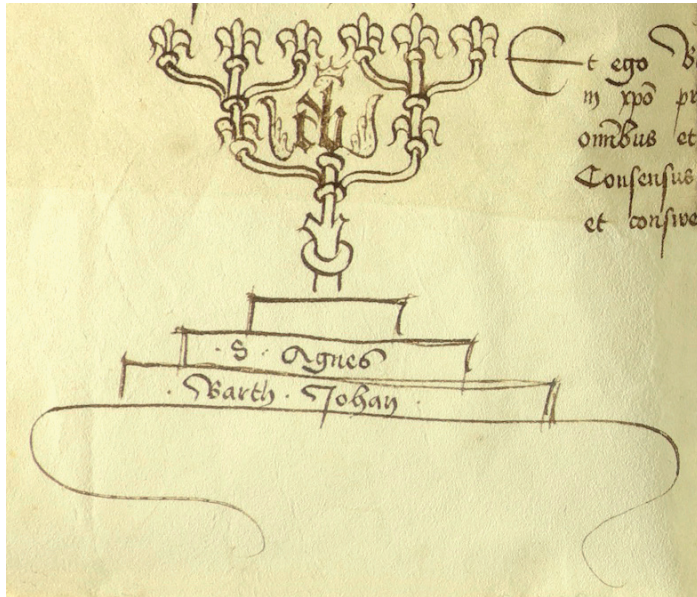 Et ego
in xp̄o
om̄ibus et
Consensus
et
· S · Agnes
· Barth · Johan ·